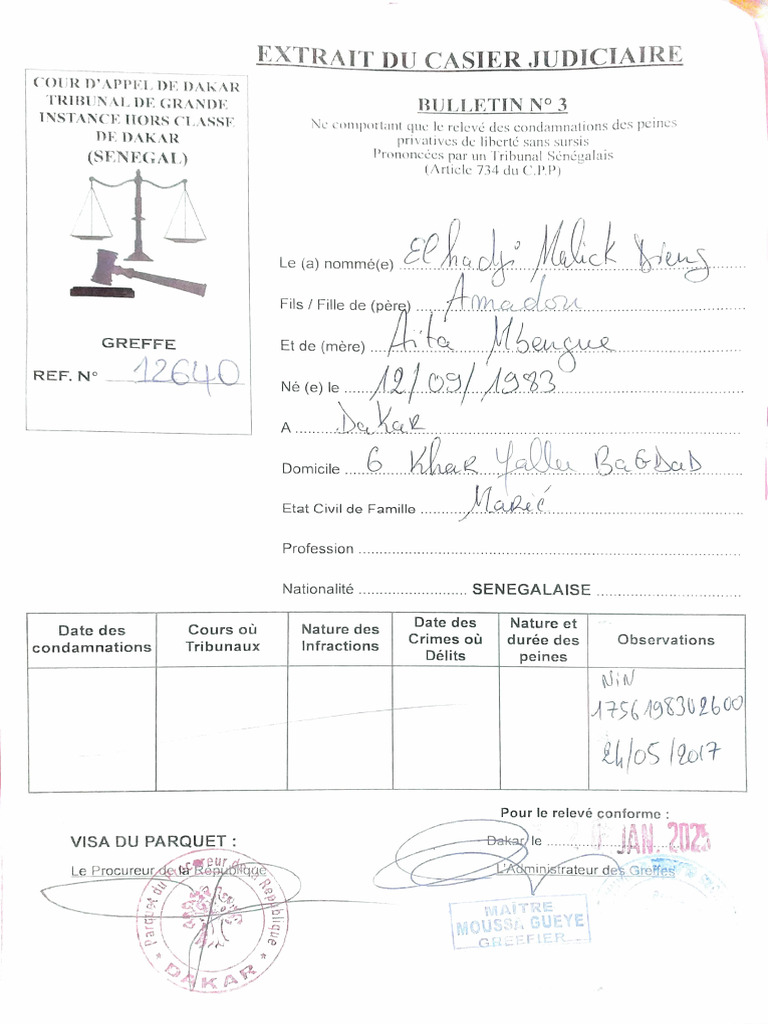 EXTRAIT DU CASIER JUDICIAIRE
COUR D'APPEL DE DAKAR
TRIBUNAL DE GRANDE
INSTANCE HORS CLASSE
DE DAKAR
(SENEGAL)
GREFFE
REF. N° 12640
BULLETIN N° 3
Ne comportant que le relevé des condamnations des peines
privatives de liberté sans sursis
Prononcées par un Tribunal Sénégalais
(Article 734 du C.P.P)
Le (a) nommé(e) El hadji Malick Dieng
Fils / Fille de (père) Amadou
Et de (mère) Aïta Mbengue
Né (e) le 12/09/1983
A Dakar
Domicile 6 Khar Yalla BAGDAD
Etat Civil de Famille Marié
Profession
Nationalité SENEGALAISE
Date des condamnations
Cours où Tribunaux
Nature des Infractions
Date des Crimes où Délits
Nature et durée des peines
Observations
NIN
1756198302600
24/05/2017
Pour le relevé conforme :
VISA DU PARQUET :
Dakar, le JAN. 2025
Le Procureur de la République
L'Administrateur des Greffes
Parquet du Procureur de la République
DAKAR
MAÎTRE
MOUSSA GUEYE
GREFFIER